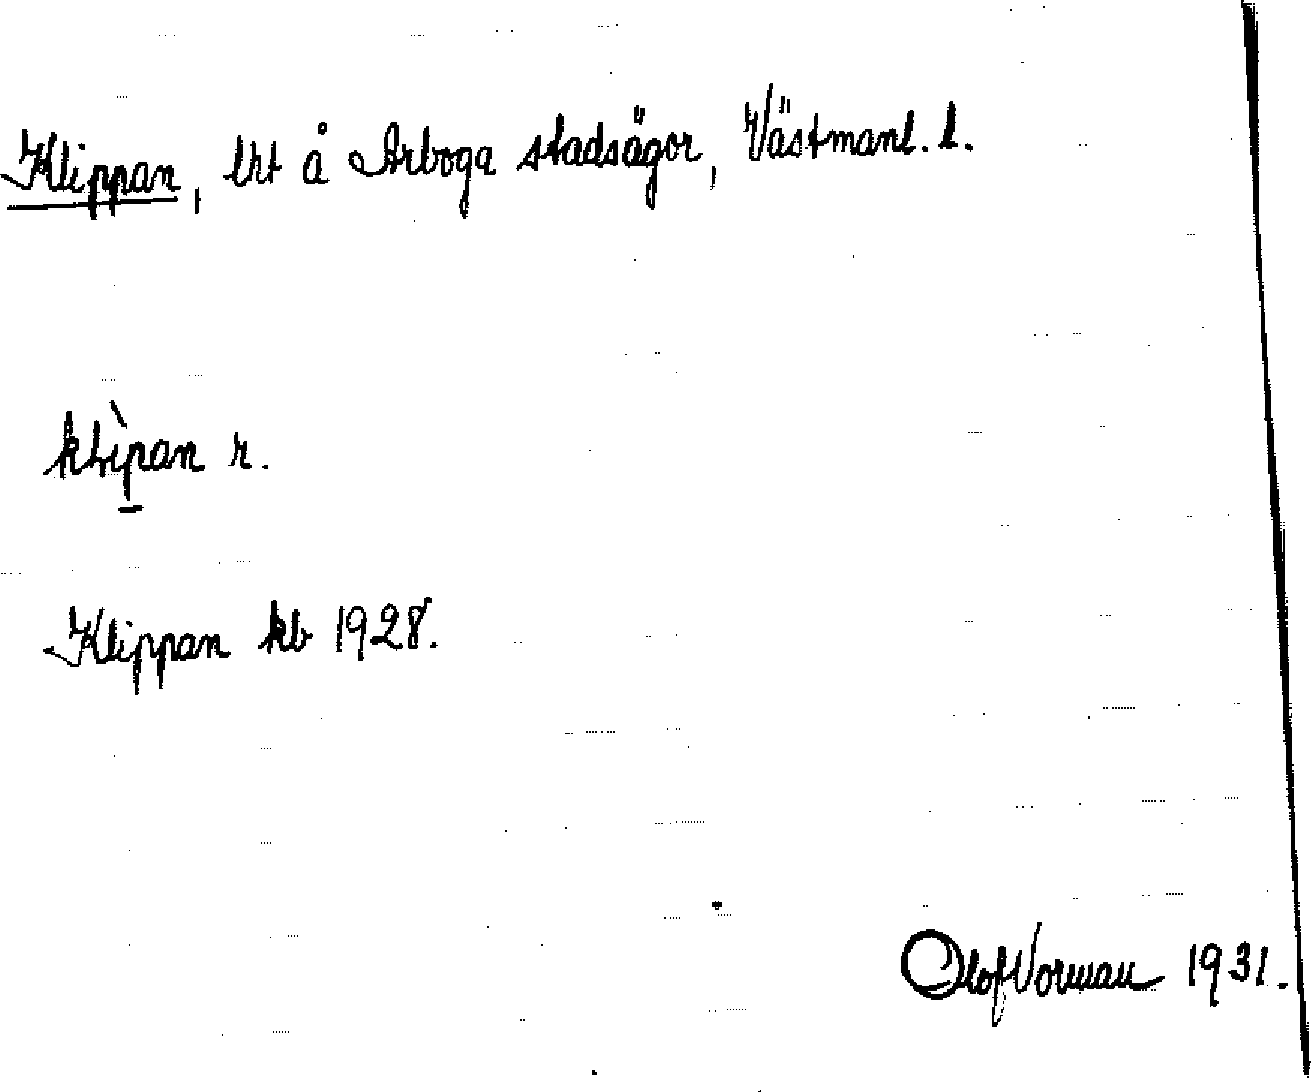 Klippan, lht å Arboga stadsägor, Västmanl. l.
klìpan r.
Klippan kb 1928.
Olof Vorman 1931.